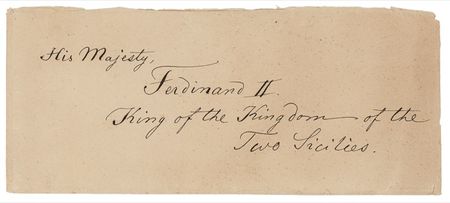 His Majesty,
Ferdinand II.
King of the Kingdom of the
Two Sicilies.